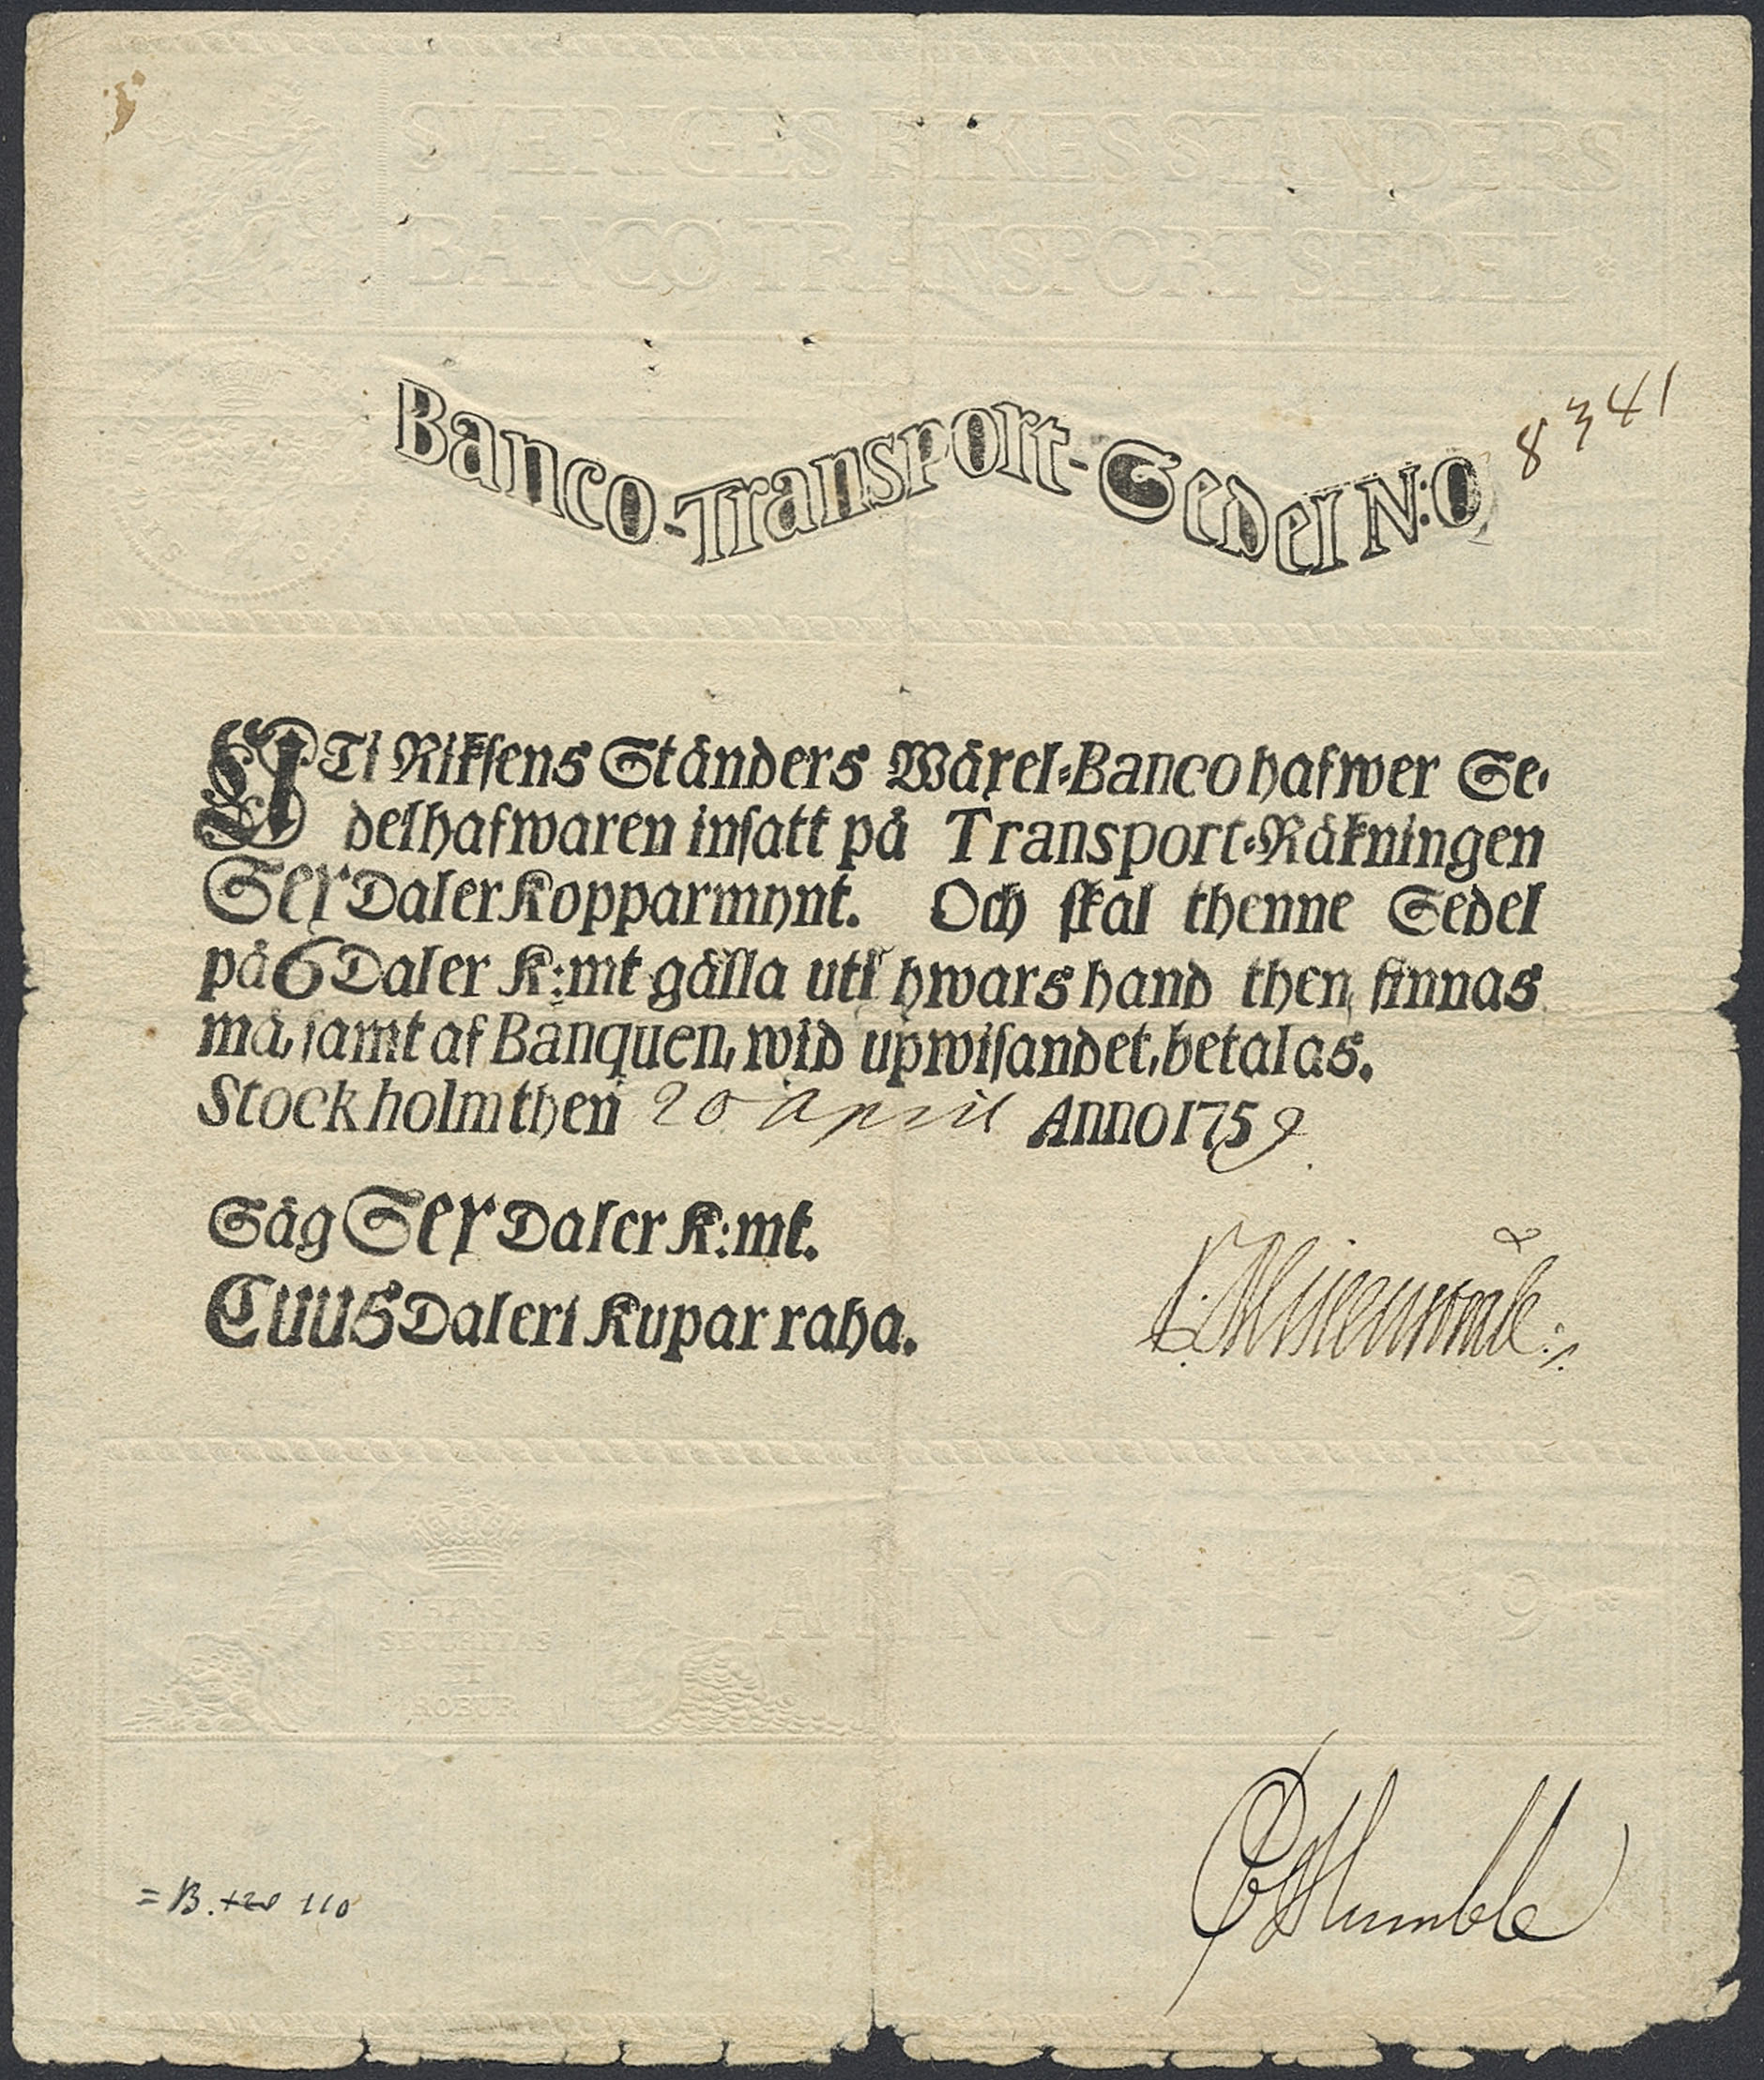 SVERIGES RIKES STÄNDERS
BANCO TRANSPORT SEDEL *
Banco-Transport-Sedel N:O 8341
UTi Riksens Ständers Wäxel-Banco hafwer Se-
delhafwaren insatt på Transport-Räkningen
Sex Daler Kopparmynt. Och skal thenne Sedel
på 6 Daler K:mt gälla uti hwars hand then finnas
må, samt af Banquen, wid upwisandet, betalas.
Stockholm then 20 April Anno 1759
Säg Sex Daler K:mt.
Cuus Daleri Kupar raha.
ANNO * 1759 *
HINC
SECURITAS
ET
ROBUR
Humble
= B. 110